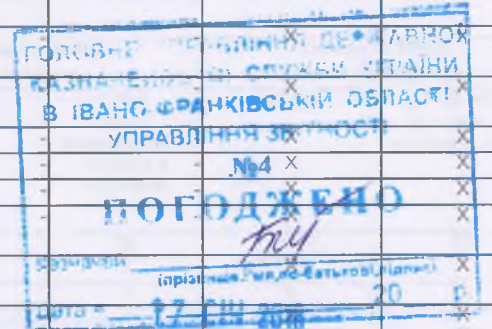 ГОЛОВНЕ УПРАВЛІННЯ ДЕРЖАВНОЇ
КАЗНАЧЕЙСЬКОЇ СЛУЖБИ УКРАЇНИ
В ІВАНО-ФРАНКІВСЬКІЙ ОБЛАСТІ
УПРАВЛІННЯ ЗВІТНОСТІ
№4
ПОГОДЖЕНО
Казначей
(прізвище, ім'я, по-батькові, підпис)
Дата "17 СІЧ 20 р